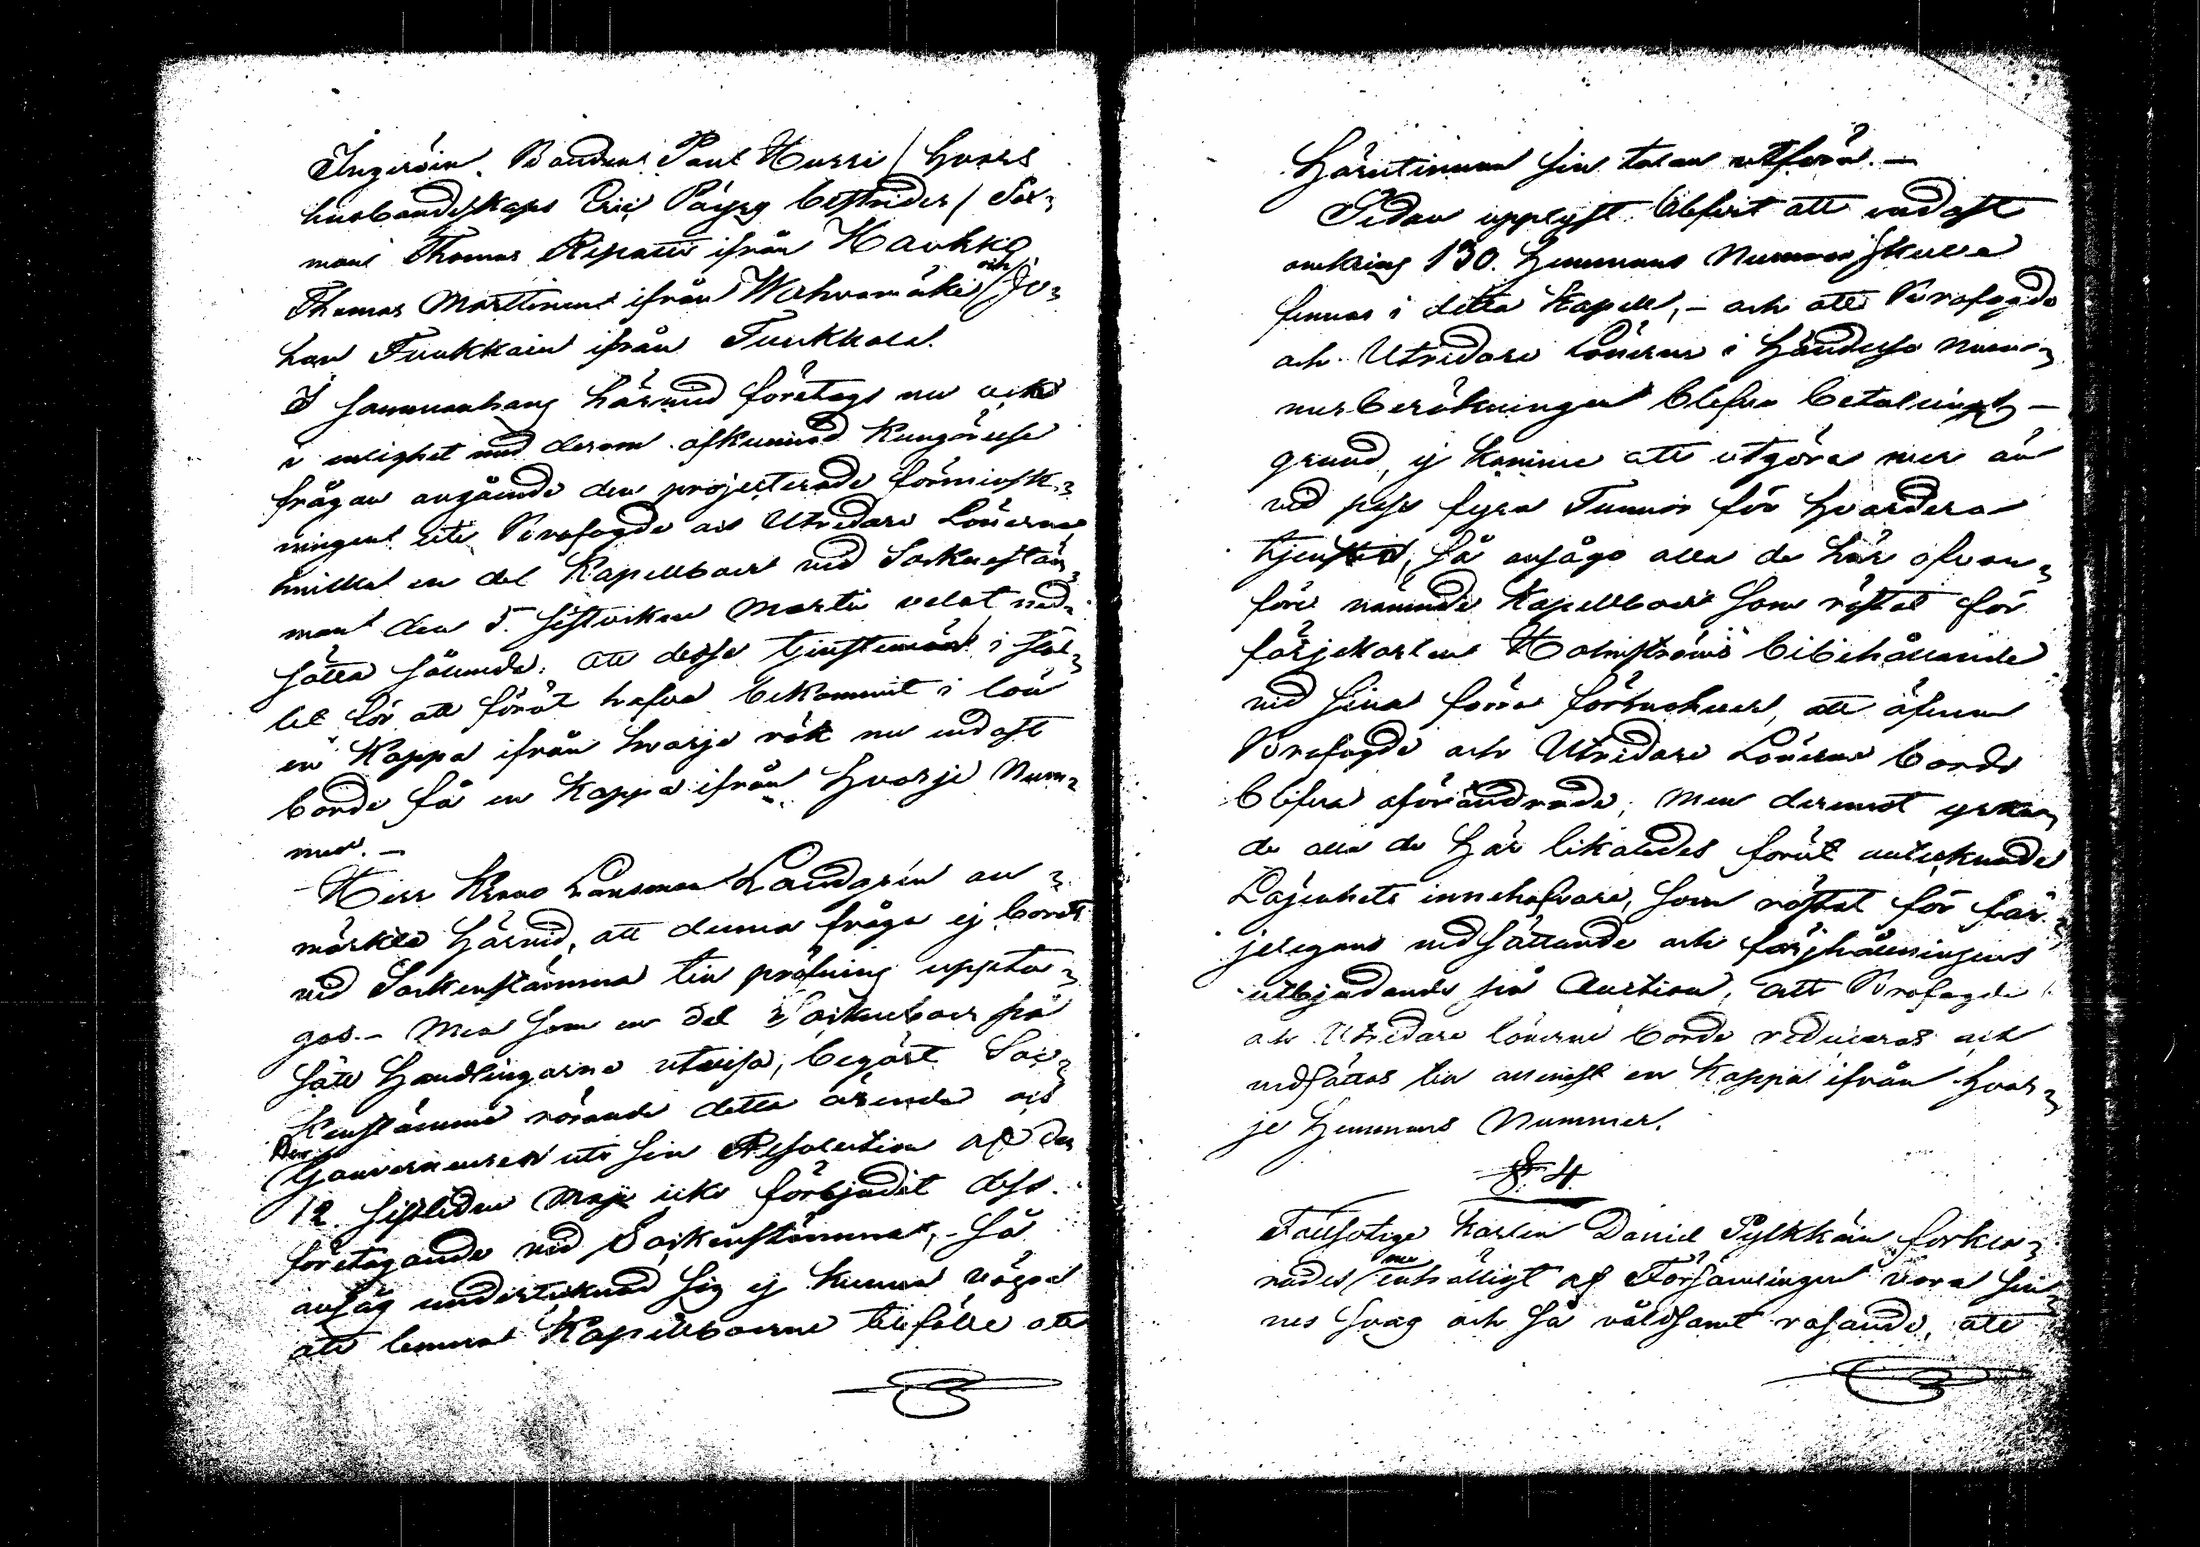 Ingeröin. Bonden Paul Hurri / hvars
husbandskaps Eric Päyry bestrider / Sex¬
man Thomas Repatti ifrån Haukka
Thomas Marttinen ifrån Werhvamäki och Jo¬
han Tuukkain ifrån Tuukkala.
I sammanhang härmed företogs nu ock
i enlighet med derom afkunnad Kungörelse
frågan angående den projecterade förminsk¬
ningen uti Brofogde och Utridare Lönerna
hvilka en del Kapellboer vid Sockenstäm¬
man den 5. sistvikne Martii velat ned¬
sätta sålunda: att desse tjenstemän i stäl¬
let för att förut hafva bekommit i lön
en Kappa ifrån hvarje rök nu endast
borde få en Kappa ifrån hvarje Num¬
mer. —
Herr Krono Länsman Landgrén an¬
märkte härvid, att denna fråga ej borde
vid Sockenstämma till pröfning uppta¬
gas. — Men som en del Sockneboer på
sätt Handlingarne utvisa, begärt Soc¬
kenstämma rörande detta ärende och
Herr Gouverneuren uti sin Resolution af den
12 sistliden Maji icke förbjudit dess
företagande vid Sockenstämma, - så
ansåg undertecknad sig ej kunna vägra
att lemna Kapellboerne tillfälle att
härutinnan sin talan utföra. —
Sedan upplyst blifvit att endast
omkring 130. Hemmans Nummer skulle
finnas i detta Kapell, — och att Brofogde
och Utridare Lönerne i händelse num¬
merberäkningen blefve betalnings—
grund, ej komme att utgöra mer än
vid pass fyra Tunnor för hvardera
tjensten, så ansågo alla de här ofvan¬
före nämnde Kapellboer som röstat för
färjekarlen Holmströms bibehållande
vid sina förra förmoner, att äfven
Brofogde och Utridare Lönerne borde
blifva oförändrade; men deremot yrka¬
de alla de här likaledes förut antecknade
Lägenhets innehafvare, som röstat för fär¬
jelegans nedsättande och färjhållningens
utbjudande på Auction, att Brofogde
och Utridare lönerne borde reduceras och
nedsättas till allenast en Kappa ifrån hvar¬
je Hemmans Nummer.
§. 4.
Fallsotige karlen Daniel Pylkkäin förkun¬
nades enhälligt af Församlingen vara sin¬
nes svag och så våldsamt rasande, att